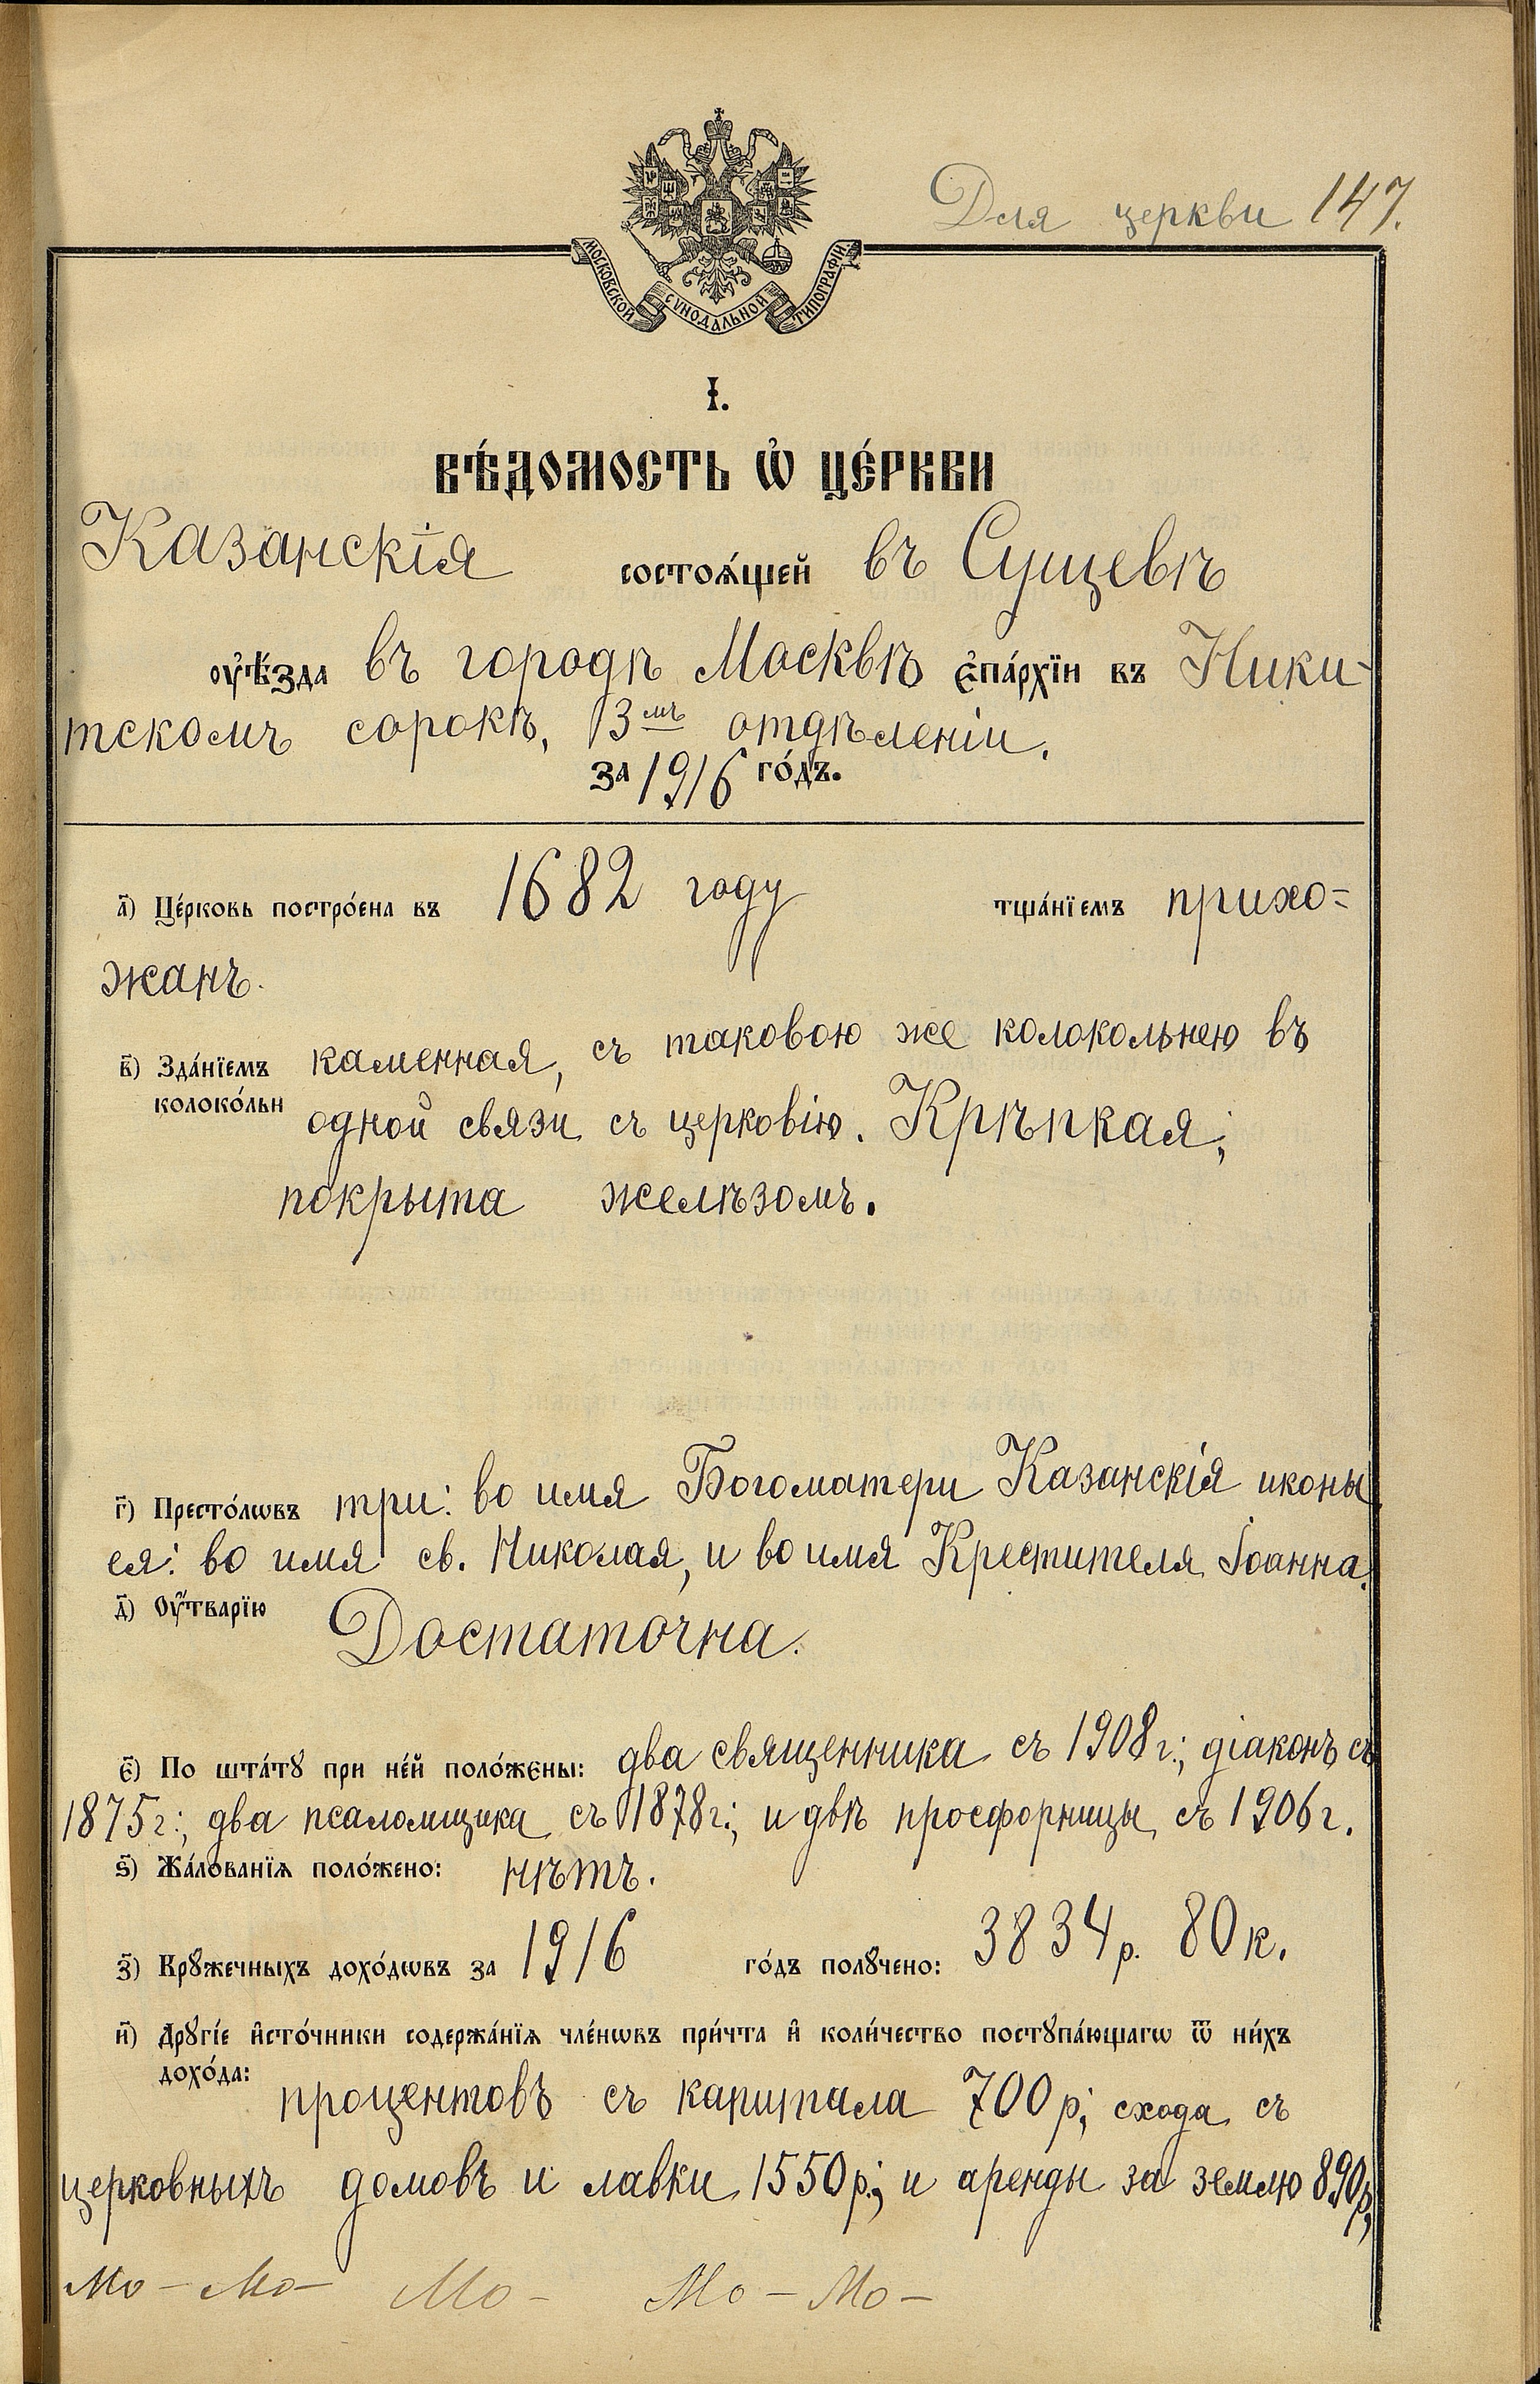 Для церкви 147.
МОСКОВСКОЙ СѴНОДАЛЬНОЙ ТИПОГРАФІИ
І.
ВѢ́ДОМОСТЬ Ѡ҆ ЦЕ́РКВИ
Казанскія состоѧ́щей въ Сущевѣ
оу҆ѣ́зда въ городѣ Москвѣ є҆па́рхїи въ Ники-
тскомъ сорокѣ, 3мъ отдѣленіи.
за 1916 го́дъ.
а҃) Це́рковь постро́ена въ 1682 году тща́нїемъ прихо=
жанъ.
в҃) Зда́нїемъ каменная, съ таковою же колокольнею въ
колоко́льн одной связи съ церковію. Крѣпкая;
покрыта желѣзомъ.
г҃) Престо́лѡвъ три: во имя Богоматери Казанскія иконы
ея: во имя св. Николая, и во имя Крестителя Іоанна.
д҃) Оу҆́тварїю Достаточна.
є҃) По шта́тꙋ при не́й поло́жены: два священника съ 1908 г.; діаконъ съ
1875 г.; два псаломщика съ 1878 г.; и двѣ просфорницы съ 1906 г.
ѕ҃) Жа́лованїѧ поло́жено: нѣтъ.
з҃) Крꙋжечныхъ дохо́дѡвъ за 1916 го́дъ полꙋчено: 3834 р. 80 к.
и҃) Дрꙋгі́е и҆сто́чники содержа́нїѧ чле́нѡвъ при́чта и҆ коли́чество постꙋпа́ющагѡ ѿ ни́хъ
дохо́да: процентовъ съ капитала 700 р; схода съ
церковныхъ домовъ и лавки 1550 р.; и аренды за землю 890 р,
Мо - Мо - Мо - Мо - Мо -